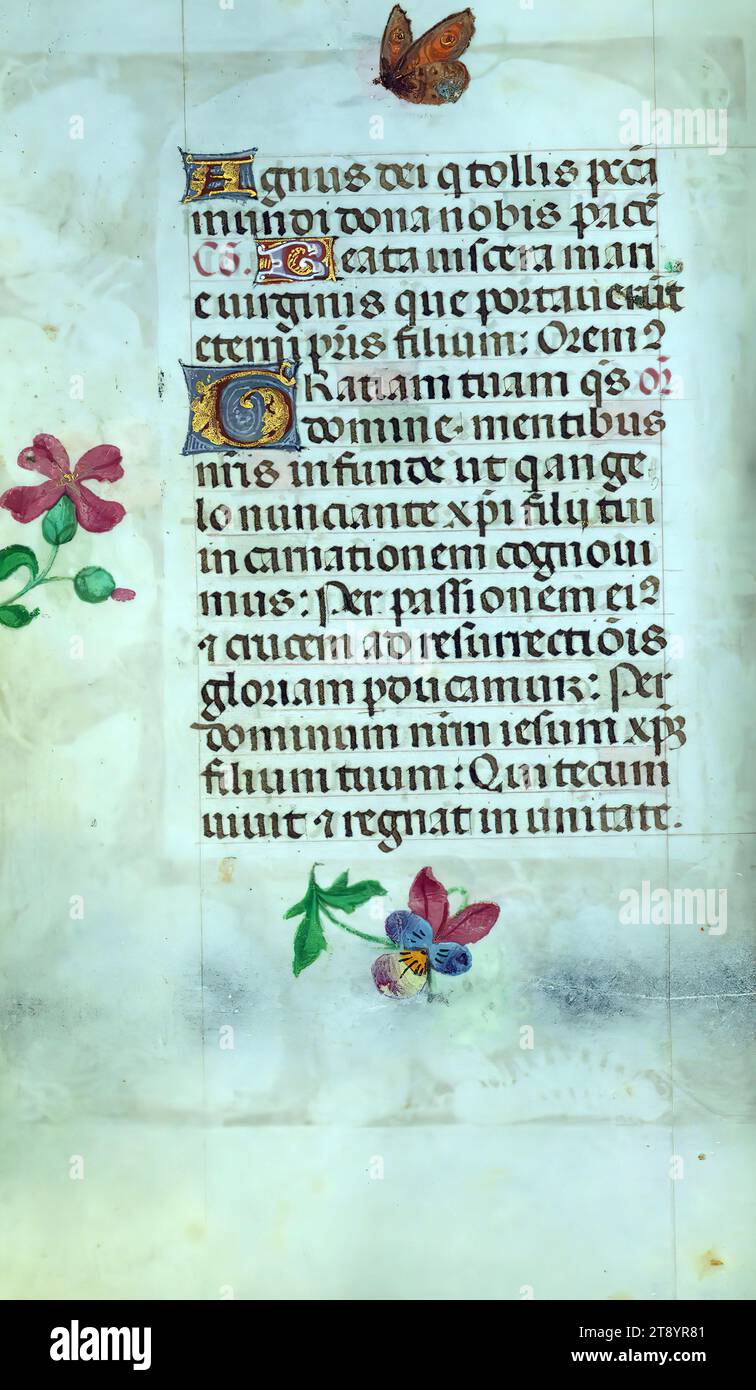 Agnus dei q tollis pctā
mundi dona nobis pacē
Cō. Beata viscera mari
e virginis que portaverūt
eterni pr̄is filium: Orem⁹
Gratiam tuam q̄s or̄
domine mentibus
nr̄is infunde ut q ange
lo nunciante xp̄i filij tui
in carnationem cognoui
mus: Per passionem ei⁹
⁊ crucem ad resurrectiōis
gloriam pducamur: Per
dominum nr̄m iesum xp̄z
filium tuum: Qui tecum
uiuit ⁊ regnat in unitate.
alamy
alamy
alamy
Image ID: 2T8YR81
www.alamy.com